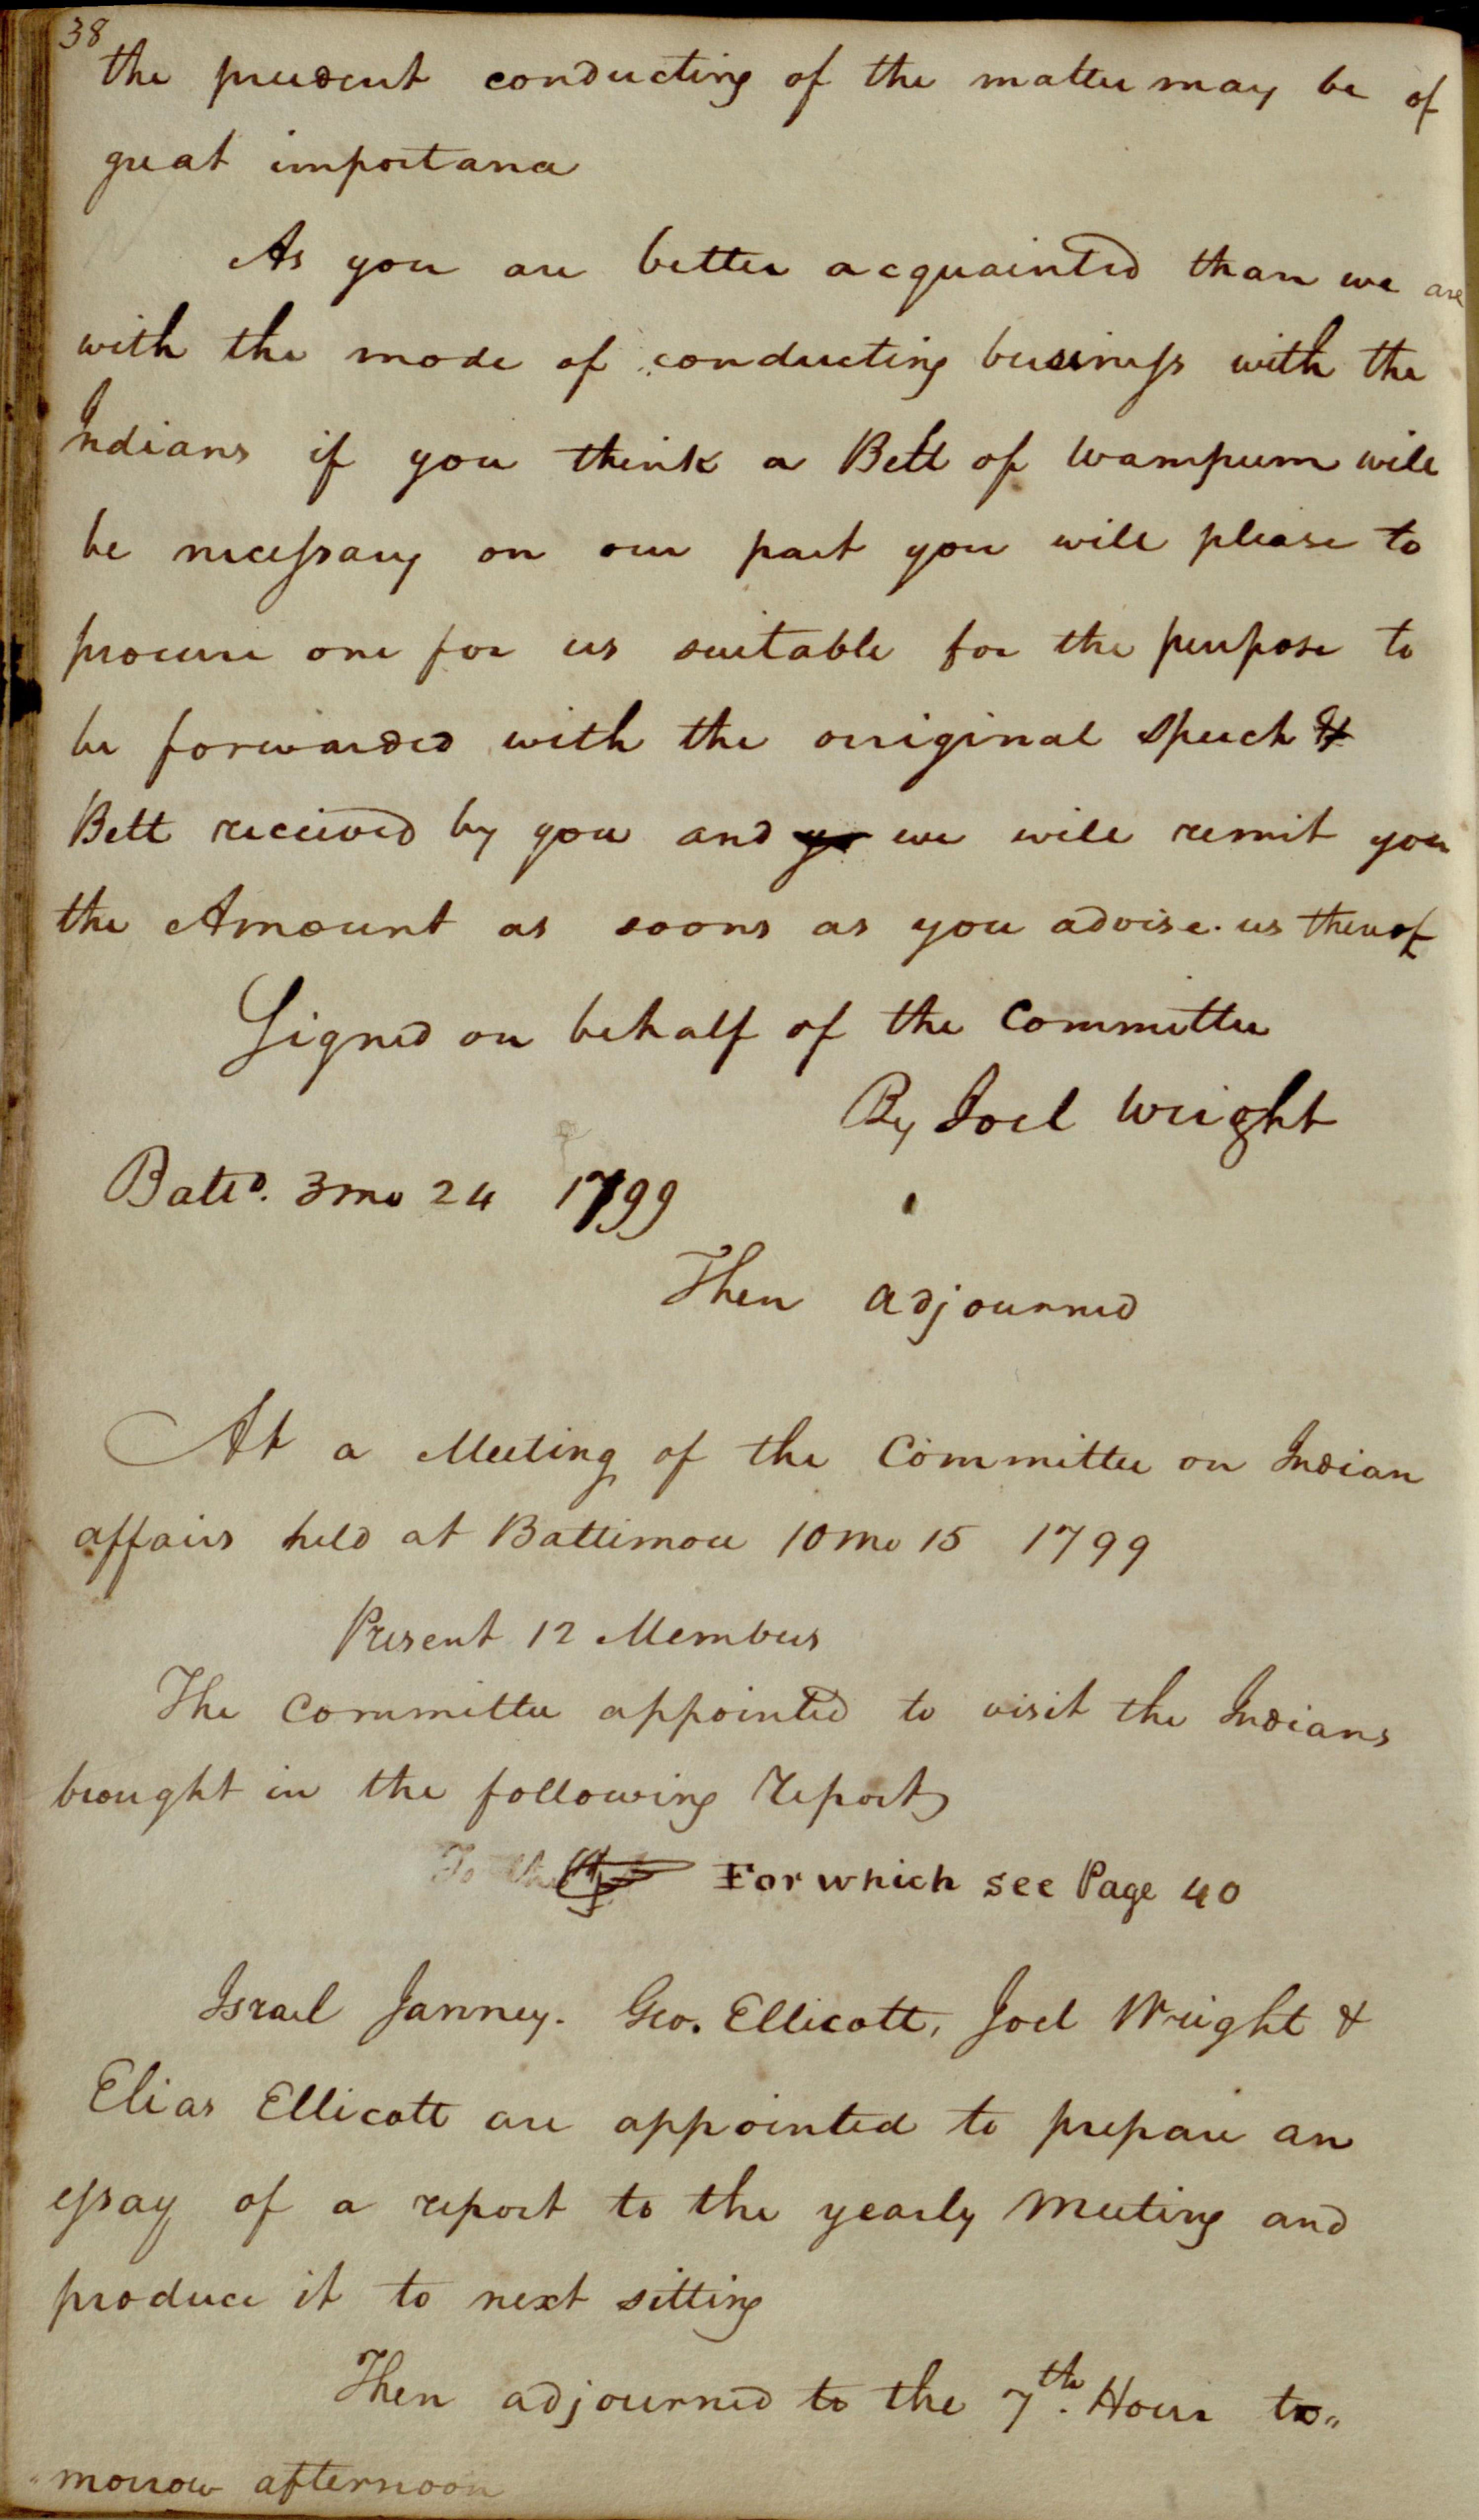 38
the prudent conducting of the matter may be of
great importance
As you are better acquainted than we are
with the mode of conducting bussiness with the
Indians if you think a Belt of Wampum will
be necessary on our part you will please to
procure one for us suitable for the purpose to
be forwarded with the original speech &
Belt received by you and yo we will remit you
the Amount as soons as you advise us thereof
Signed on behalf of the Committee
By Joel Wright
Balto. 3mo 24 1799
Then adjourned
At a Meeting of the Committee on Indian
affairs held at Baltimore 10mo 15 1799
Present 12 Members
The Committee appointed to visit the Indians
brought in the following report
To the For which see Page 40
Israel Janney. Geo. Ellicott, Joel Wright &
Elias Ellicott are appointed to prepare an
essay of a report to the yearly Meeting and
produce it to next sitting
Then adjourned to the 7th. Hour to„
morrow afternoon